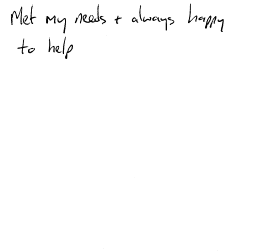 Met my needs + always happy
to help